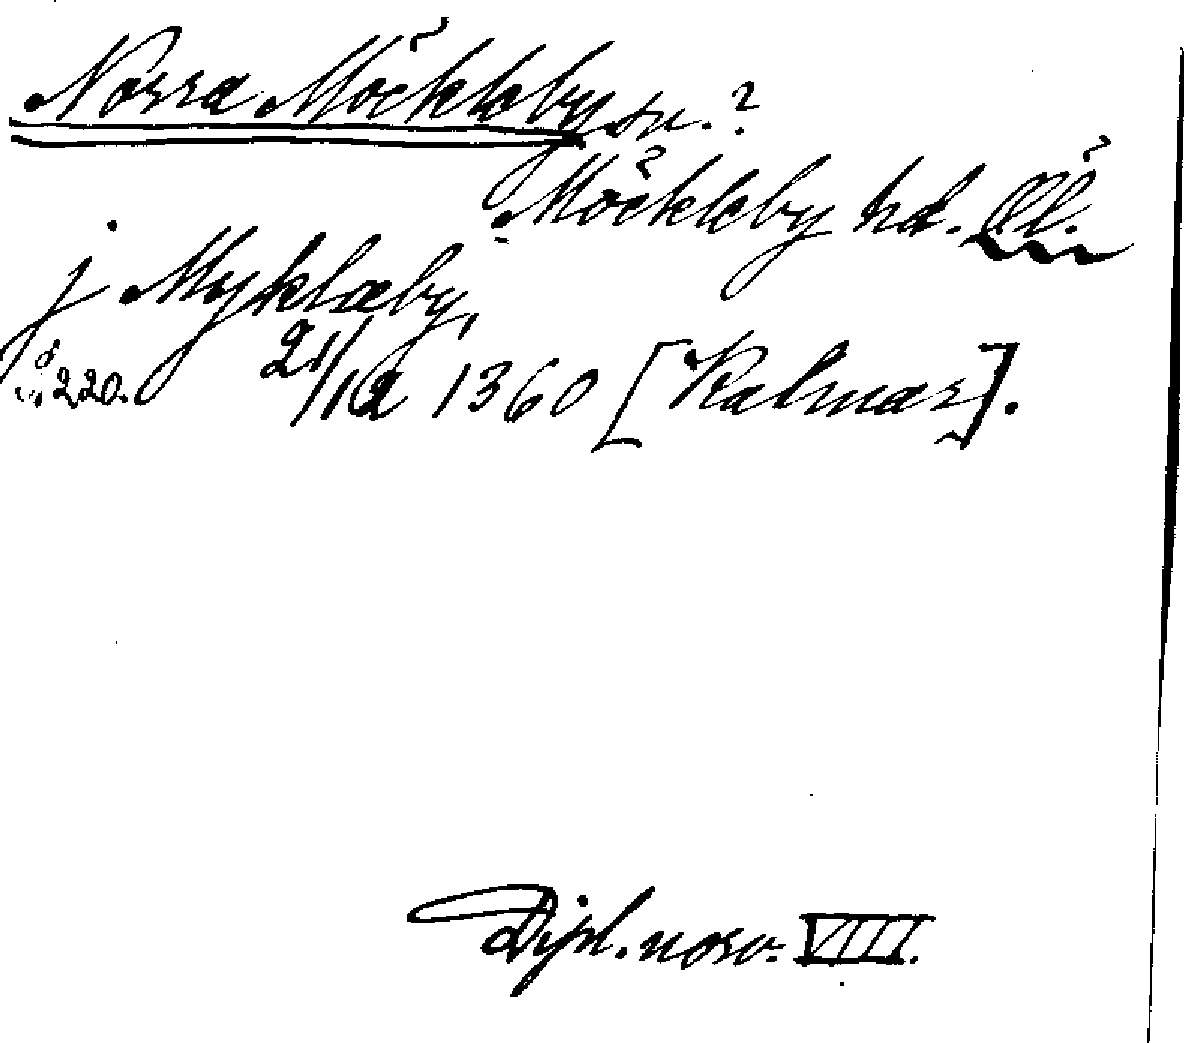 Norra Möckleby sn.?
Möckleby hd. Öl.
j Myklæby,
21/12 1360 [Kalmar].
s. 220.
Dipl. norv. VIII.